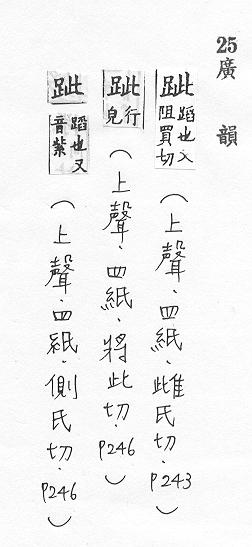 25 廣韻
跐 蹈也又阻買切（上聲．四紙．雌氏切．P243）
跐 行皃（上聲．四紙．將此切．P246）
跐 蹈也又音紫（上聲．四紙．側氏切．P246）